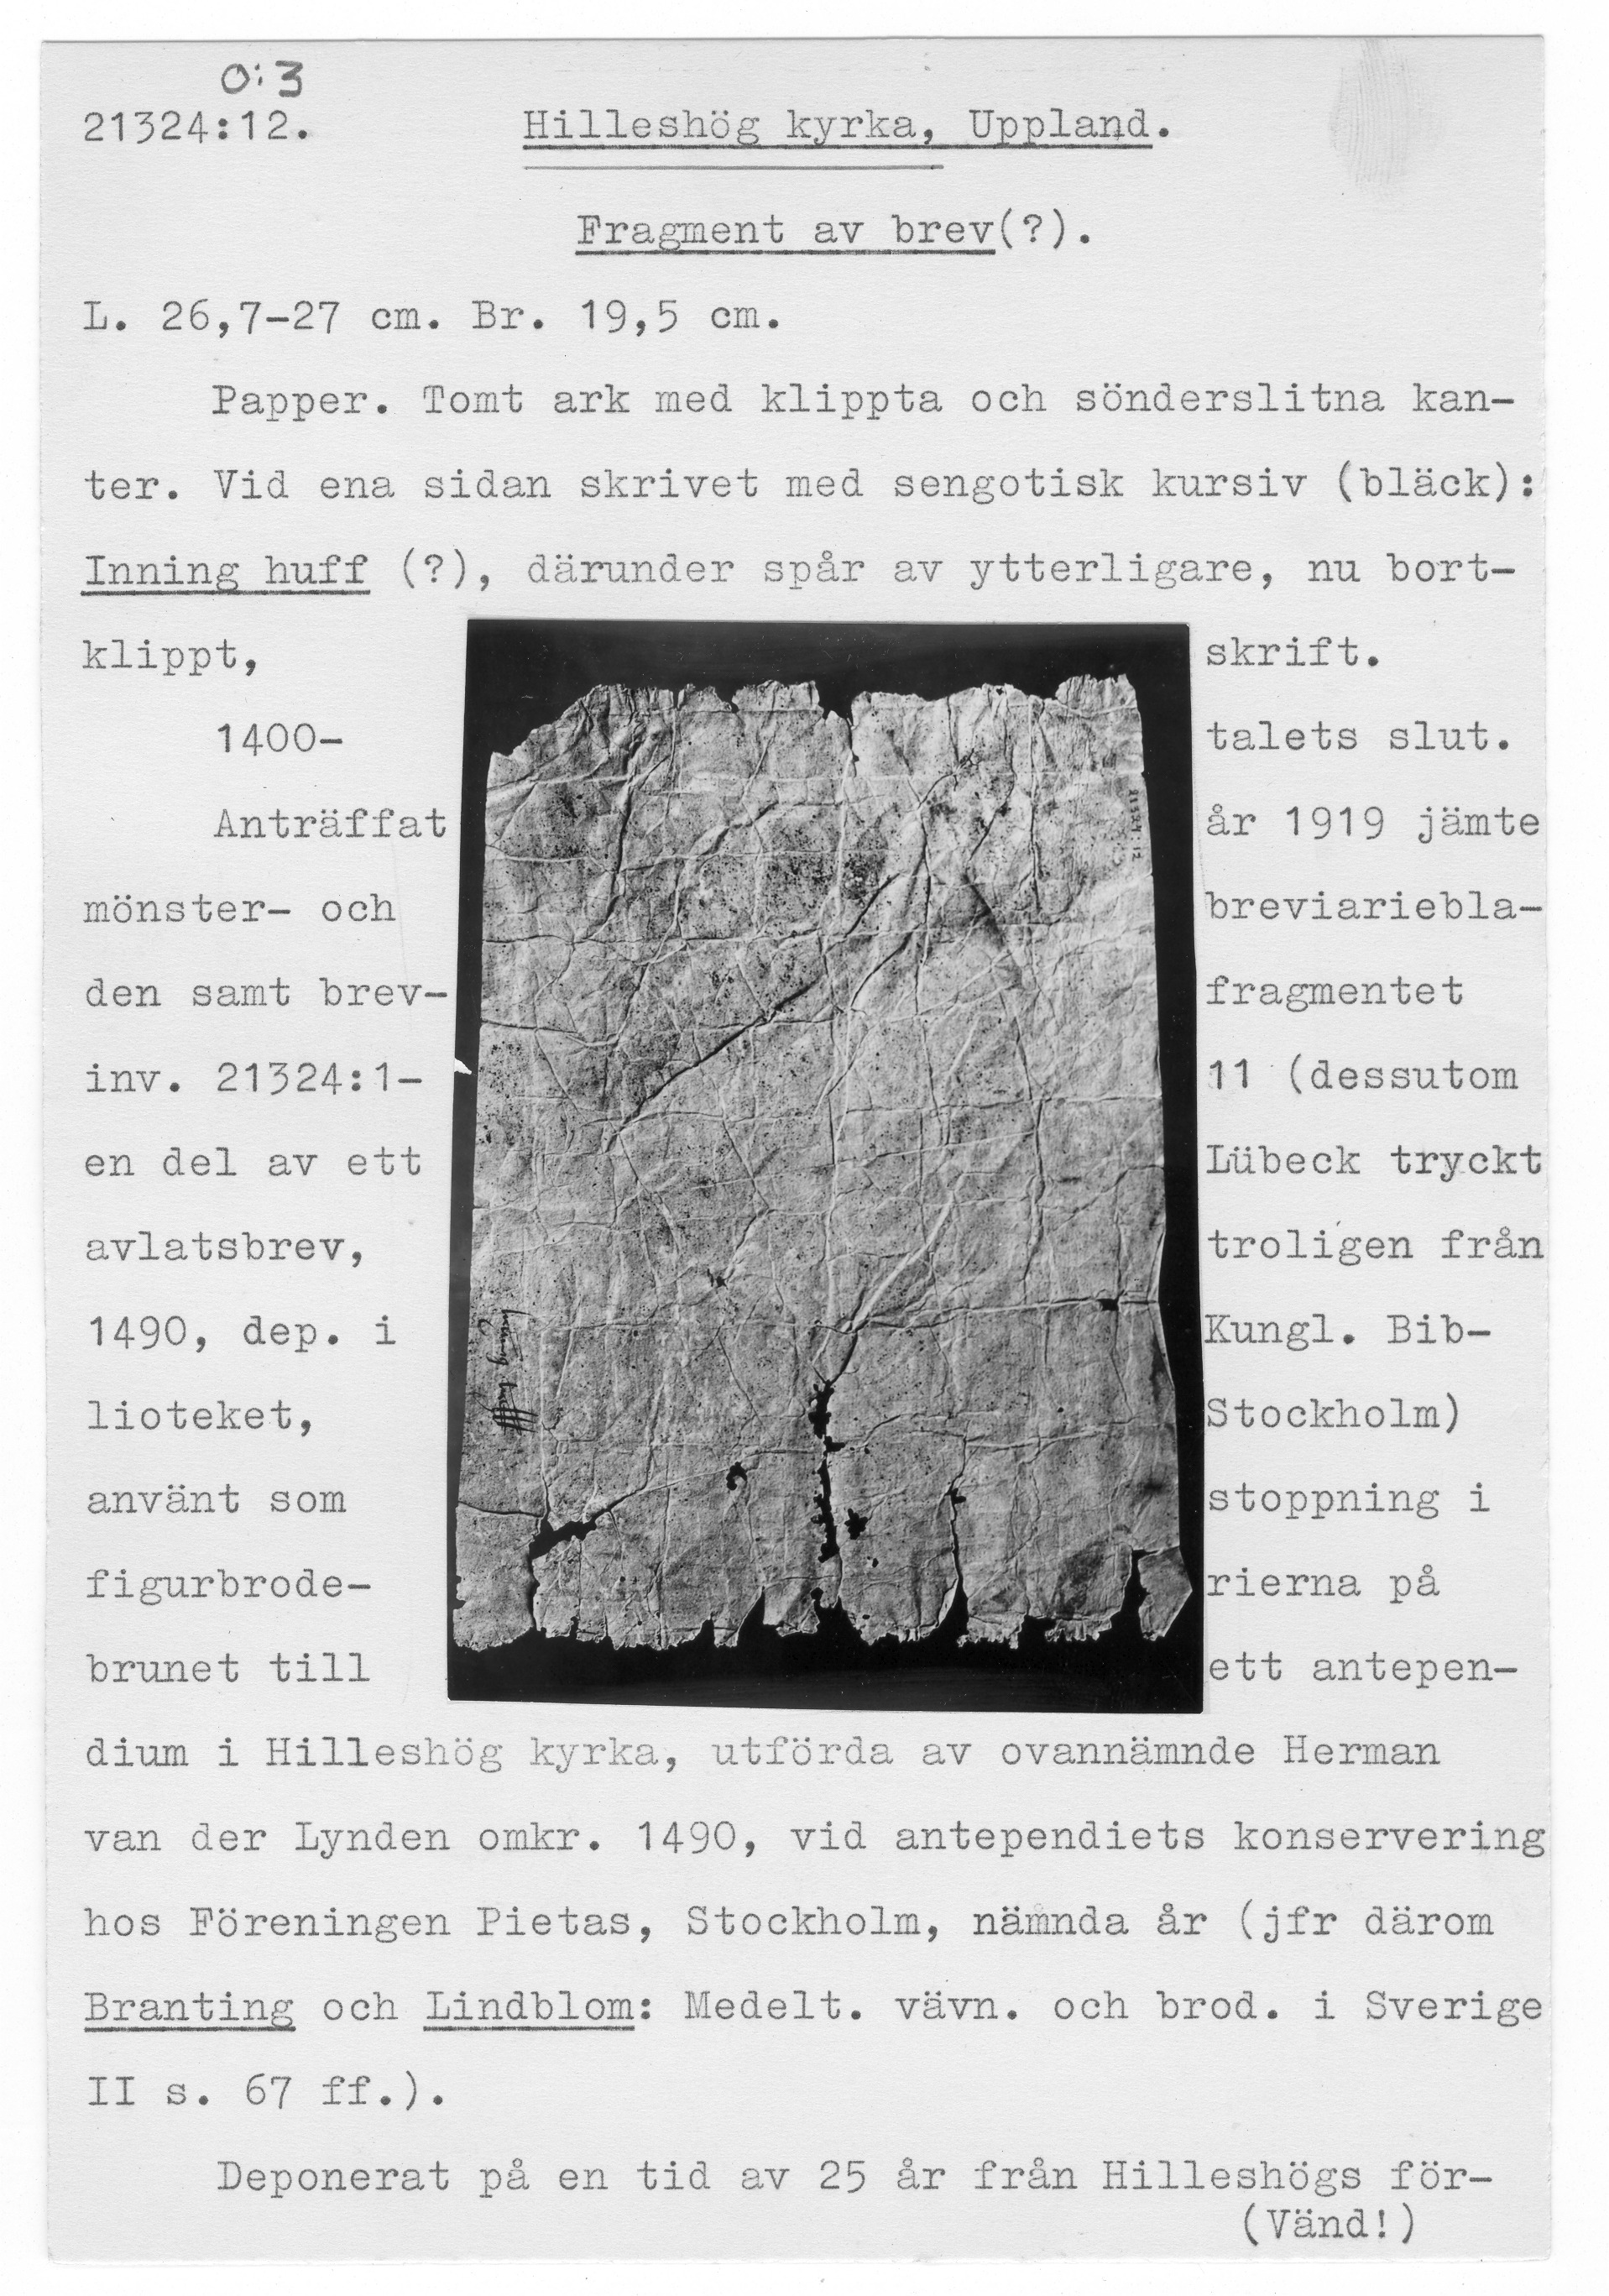 O:3
21324:12. Hilleshög kyrka, Uppland.
Fragment av brev(?).
L. 26,7-27 cm. Br. 19,5 cm.
Papper. Tomt ark med klippta och sönderslitna kan-
ter. Vid ena sidan skrivet med sengotisk kursiv (bläck):
Inning huff (?), därunder spår av ytterligare, nu bort-
klippt, skrift.
1400- talets slut.
Anträffat år 1919 jämte
mönster- och breviariebla-
den samt brev- fragmentet
inv. 21324:1- 11 (dessutom
en del av ett Lübeck tryckt
avlatsbrev, troligen från
1490, dep. i Kungl. Bib-
lioteket, Stockholm)
använt som stoppning i
figurbrode- rierna på
brunet till ett antepen-
dium i Hilleshög kyrka, utförda av ovannämnde Herman
van der Lynden omkr. 1490, vid antependiets konservering
hos Föreningen Pietas, Stockholm, nämnda år (jfr därom
Branting och Lindblom: Medelt. vävn. och brod. i Sverige
II s. 67 ff.).
Deponerat på en tid av 25 år från Hilleshögs för-
(Vänd!)
21324:12